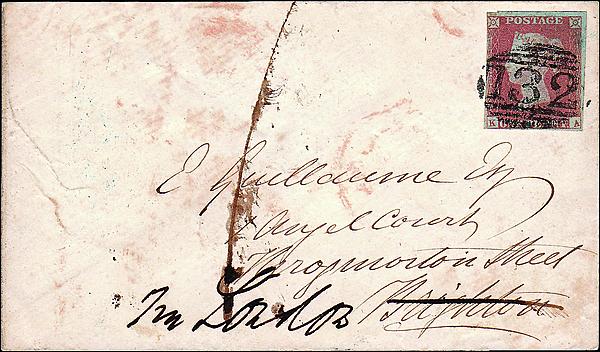 POSTAGE
132
K A
E Guillaume Esq
Angel Court
Throgmorton Street
Brighton
London